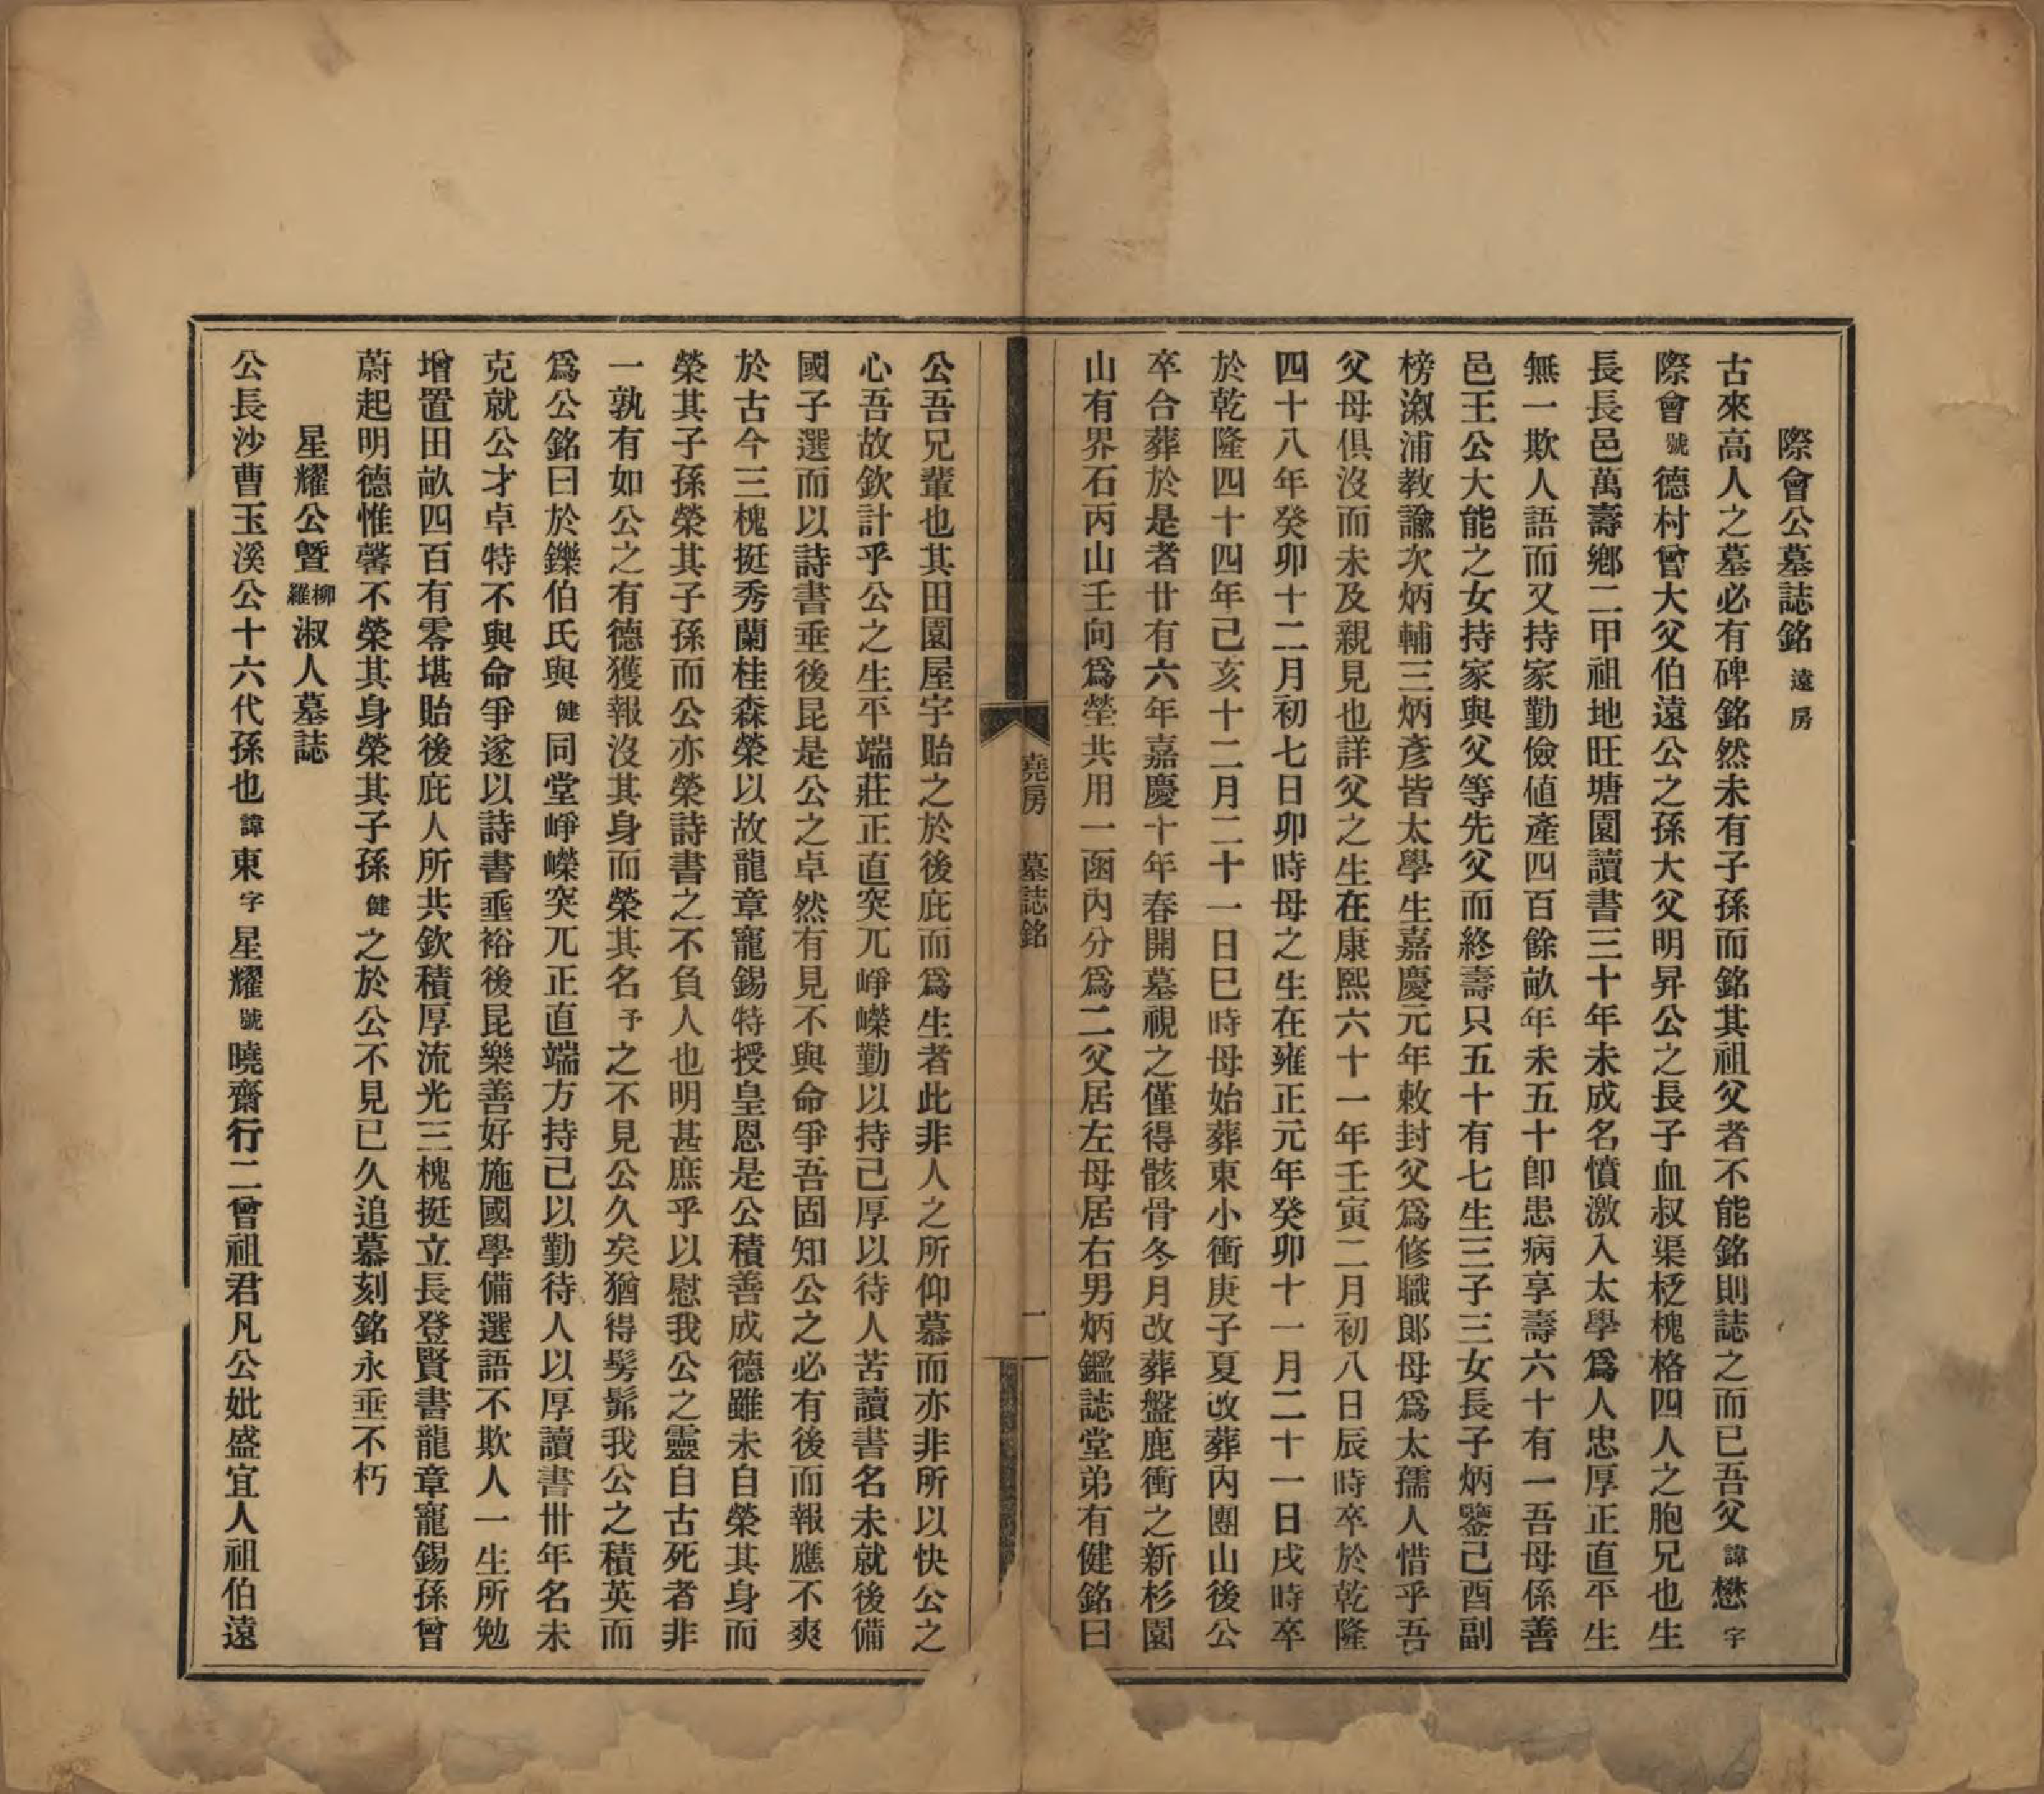 際會公墓誌銘遠房
古來高人之墓必有碑銘然未有子孫而銘其祖父者不能銘則誌之而已吾父諱懋字
際會號德村曾大父伯遠公之孫大父明昇公之長子血叔渠柉槐格四人之胞兄也生
長長邑萬壽鄉二甲祖地旺塘園讀書三十年未成名憤激入太學爲人忠厚正直平生
無一欺人語而又持家勤儉値產四百餘畝年未五十卽患病享壽六十有一吾母係善
邑王公大能之女持家與父等先父而終壽只五十有七生三子三女長子炳鑒己酉副
榜溆浦教諭次炳輔三炳彥皆太學生嘉慶元年敕封父爲修職郎母爲太孺人惜乎吾
父母俱沒而未及親見也詳父之生在康熙六十一年壬寅二月初八日辰時卒於乾隆
四十八年癸卯十二月初七日卯時母之生在雍正元年癸卯十一月二十一日戌時卒
於乾隆四十四年己亥十二月二十一日巳時母始葬東小衝庚子夏改葬內團山後公
卒合葬於是者廿有六年嘉慶十年春開墓視之僅得骸骨冬月改葬盤鹿衝之新杉園
山有界石丙山壬向爲塋共用一函內分爲二父居左母居右男炳鑑誌堂弟有健銘曰
堯房　墓誌銘　一
公吾兄輩也其田園屋宇貽之於後庇而爲生者此非人之所仰慕而亦非所以快公之
心吾故欽計乎公之生平端莊正直突兀崢嶸勤以持己厚以待人苦讀書名未就後備
國子選而以詩書垂後昆是公之卓然有見不與命爭吾固知公之必有後而報應不爽
於古今三槐挺秀蘭桂森榮以故龍章寵錫特授皇恩是公積善成德雖未自榮其身而
榮其子孫榮其子孫而公亦榮詩書之不負人也明甚庶乎以慰我公之靈自古死者非
一孰有如公之有德獲報沒其身而榮其名予之不見公久矣猶得髣髴我公之積英而
爲公銘曰於鑠伯氏與健同堂崢嶸突兀正直端方持己以勤待人以厚讀書卅年名未
克就公才卓特不與命爭遂以詩書垂裕後昆樂善好施國學備選語不欺人一生所勉
增置田畝四百有零堪貽後庇人所共欽積厚流光三槐挺立長登賢書龍章寵錫孫曾
蔚起明德惟馨不榮其身榮其子孫健之於公不見已久追慕刻銘永垂不朽
星耀公暨柳羅淑人墓誌
公長沙曹玉溪公十六代孫也諱東字星耀號曉齋行二曾祖君凡公妣盛宜人祖伯遠